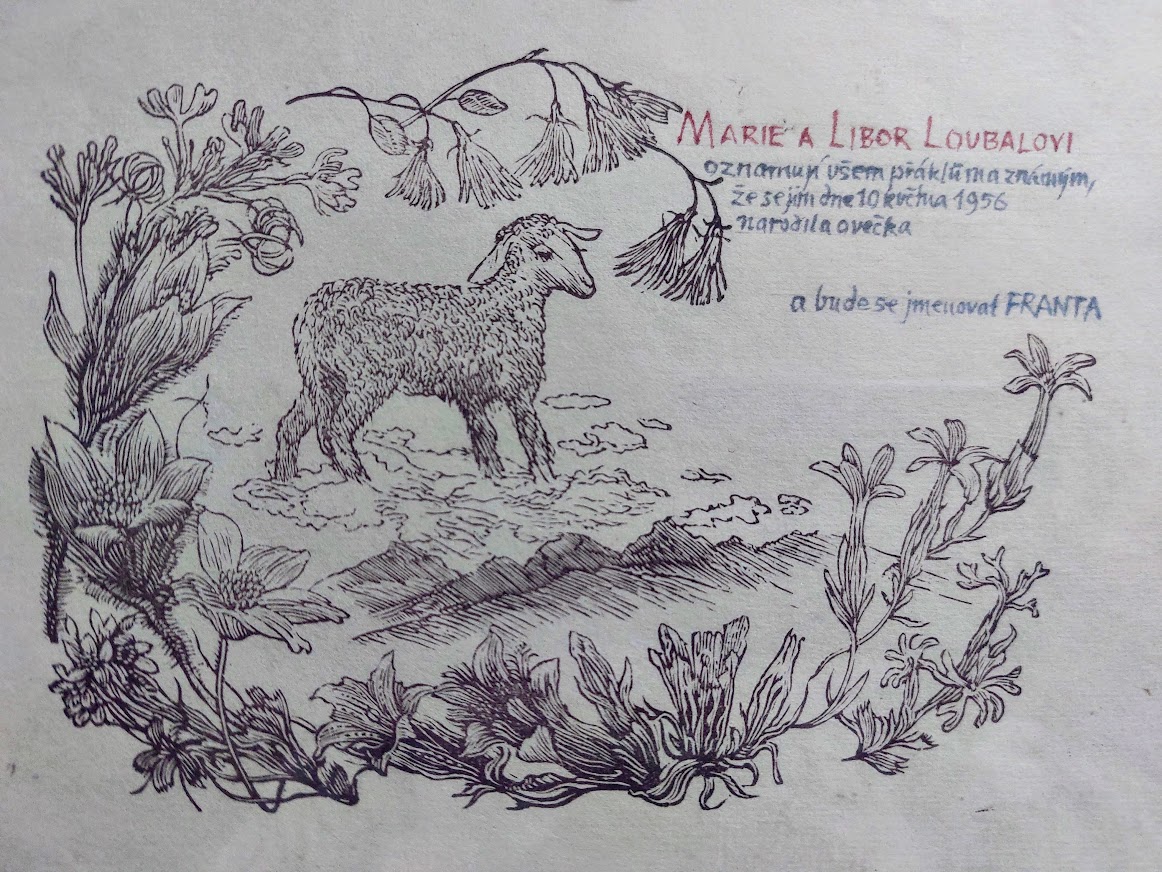 MARIE A LIBOR LOUBALOVI
oznamují všem přátelům a známým,
že se jim dne 10 května 1956
narodila ovečka
a bude se jmenovat FRANTA